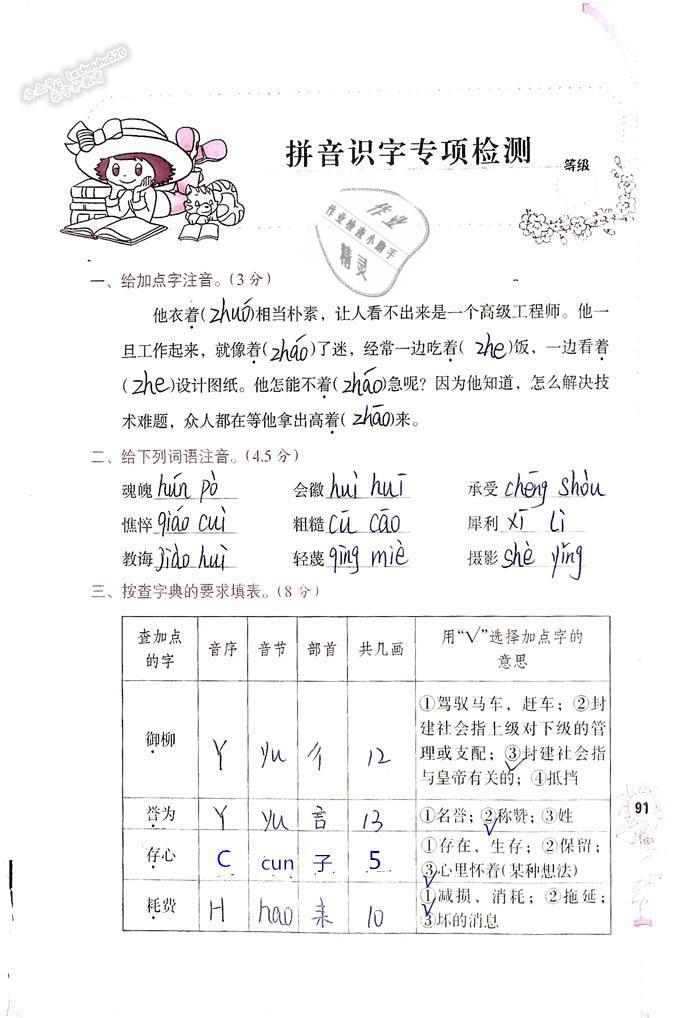 公众号: leshouhu520
乐守护教育
拼音识字专项检测 等级
作业
作业检查小助手
精灵
一、给加点字注音。(3分)
他衣着(zhuó)相当朴素，让人看不出来是一个高级工程师。他一
旦工作起来，就像着(zháo)了迷，经常一边吃着(zhe)饭，一边看着
(zhe)设计图纸。他怎能不着(zháo)急呢？因为他知道，怎么解决技
术难题，众人都在等他拿出高着(zhāo)来。
二、给下列词语注音。(4.5分)
魂魄 hún pò 会徽 huì huī 承受 chéng shòu
憔悴 qiáo cuì 粗糙 cū cāo 犀利 xī lì
教诲 jiào huì 轻蔑 qīng miè 摄影 shè yǐng
三、按查字典的要求填表。(8分)
查加点的字 音序 音节 部首 共几画 用“√”选择加点字的意思
御柳 Y yu 彳 12 ①驾驭马车，赶车；②封
建社会指上级对下级的管
理或支配；③√封建社会指
与皇帝有关的；④抵挡
誉为 Y yu 言 13 ①名誉；②√称赞；③姓
存心 C cun 子 5 ①存在，生存；②保留；
③√心里怀着(某种想法)
耗费 H hao 耒 10 ①√减损，消耗；②拖延；
③坏的消息
91